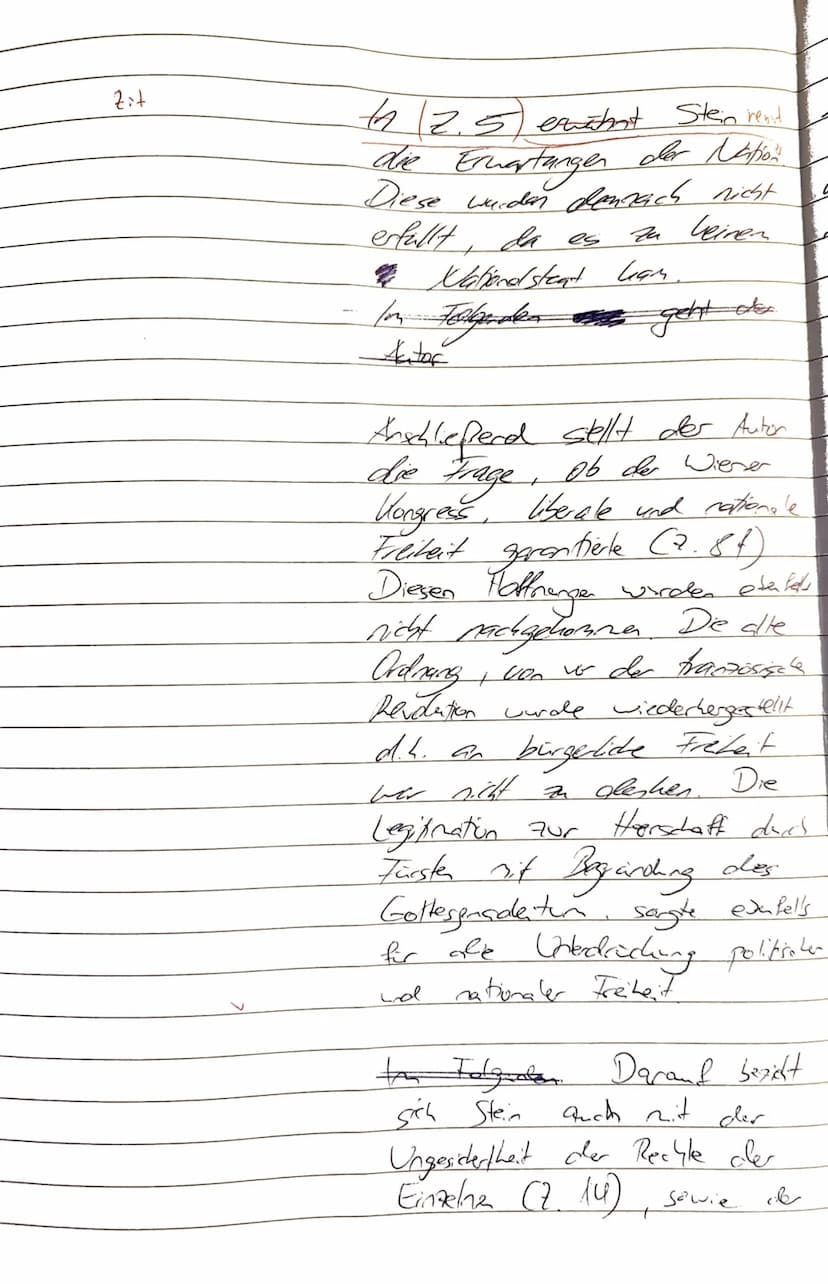 Zit
In (Z. 5) erwähnt Stein nennt
die Erwartungen der Nation.
Diese wurden demnach nicht
erfüllt, da es zu keinem
Nationalstaat kam.
Im Folgenden geht der
Autor
Anschließend stellt der Autor
die Frage, ob der Wiener
Kongress, liberale und nationale
Freiheit garantierte (Z. 8f)
Diesen Hoffnungen wurden ebenfalls
nicht nachgekommen. Die alte
Ordnung, von vor der französische
Revolution wurde wiederhergestellt
d.h. an bürgerliche Freiheit
war nicht zu denken. Die
Legitimation zur Herrschaft durch
Fürsten mit Begründung des
Gottesgnadentum, sorgte ebenfalls
für die Unterdrückung politischer
und nationaler Freiheit.
Im Folgenden Darauf bezieht
sich Stein auch mit der
Ungesichertheit der Rechte der
Einzelne (Z. 14), sowie der